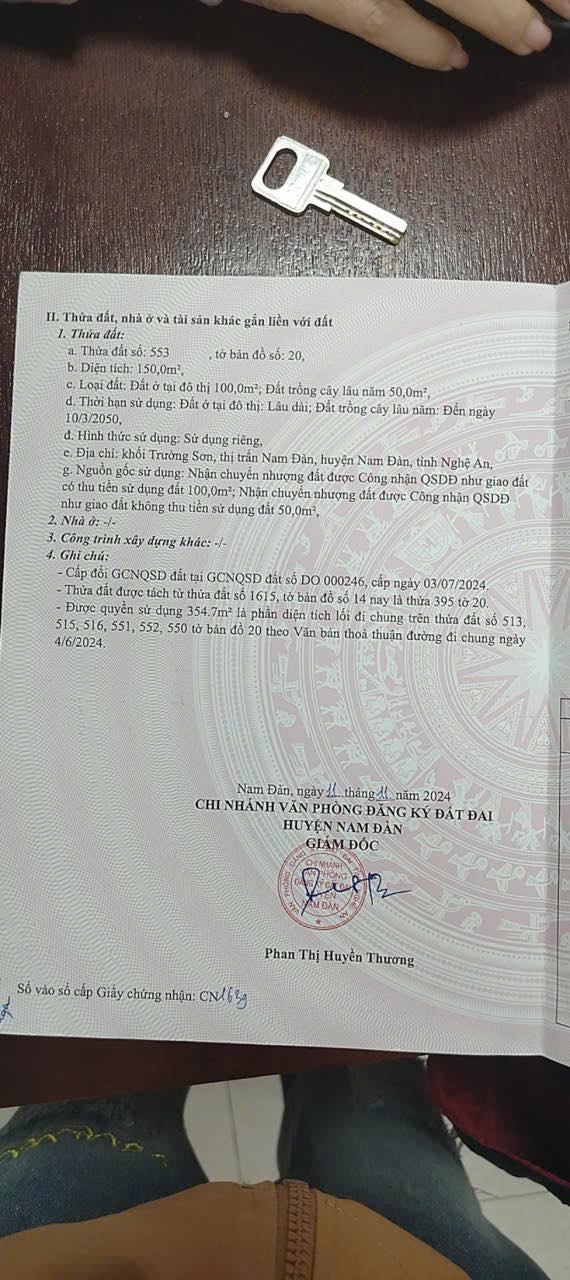 II. Thửa đất, nhà ở và tài sản khác gắn liền với đất
1. Thửa đất:
a. Thửa đất số: 553 , tờ bản đồ số: 20,
b. Diện tích: 150,0m²,
c. Loại đất: Đất ở tại đô thị 100,0m²; Đất trồng cây lâu năm 50,0m²,
d. Thời hạn sử dụng: Đất ở tại đô thị: Lâu dài; Đất trồng cây lâu năm: Đến ngày
10/3/2050,
đ. Hình thức sử dụng: Sử dụng riêng,
e. Địa chỉ: khối Trường Sơn, thị trấn Nam Đàn, huyện Nam Đàn, tỉnh Nghệ An,
g. Nguồn gốc sử dụng: Nhận chuyển nhượng đất được Công nhận QSDĐ như giao đất
có thu tiền sử dụng đất 100,0m²; Nhận chuyển nhượng đất được Công nhận QSDĐ
như giao đất không thu tiền sử dụng đất 50,0m²,
2. Nhà ở: -/-
3. Công trình xây dựng khác: -/-
4. Ghi chú:
- Cấp đổi GCNQSD đất tại GCNQSD đất số DO 000246, cấp ngày 03/07/2024.
- Thửa đất được tách từ thửa đất số 1615, tờ bản đồ số 14 nay là thửa 395 tờ 20.
- Được quyền sử dụng 354.7m² là phần diện tích lối đi chung trên thửa đất số 513,
515, 516, 551, 552, 550 tờ bản đồ 20 theo Văn bản thoả thuận đường đi chung ngày
4/6/2024.
Nam Đàn, ngày 11 tháng 11 năm 2024
CHI NHÁNH VĂN PHÒNG ĐĂNG KÝ ĐẤT ĐAI
HUYỆN NAM ĐÀN
GIÁM ĐỐC
CHI NHÁNH
VĂN PHÒNG
ĐĂNG KÝ ĐẤT ĐAI
HUYỆN
NAM ĐÀN
Phan Thị Huyền Thương
Số vào sổ cấp Giấy chứng nhận: CN1639